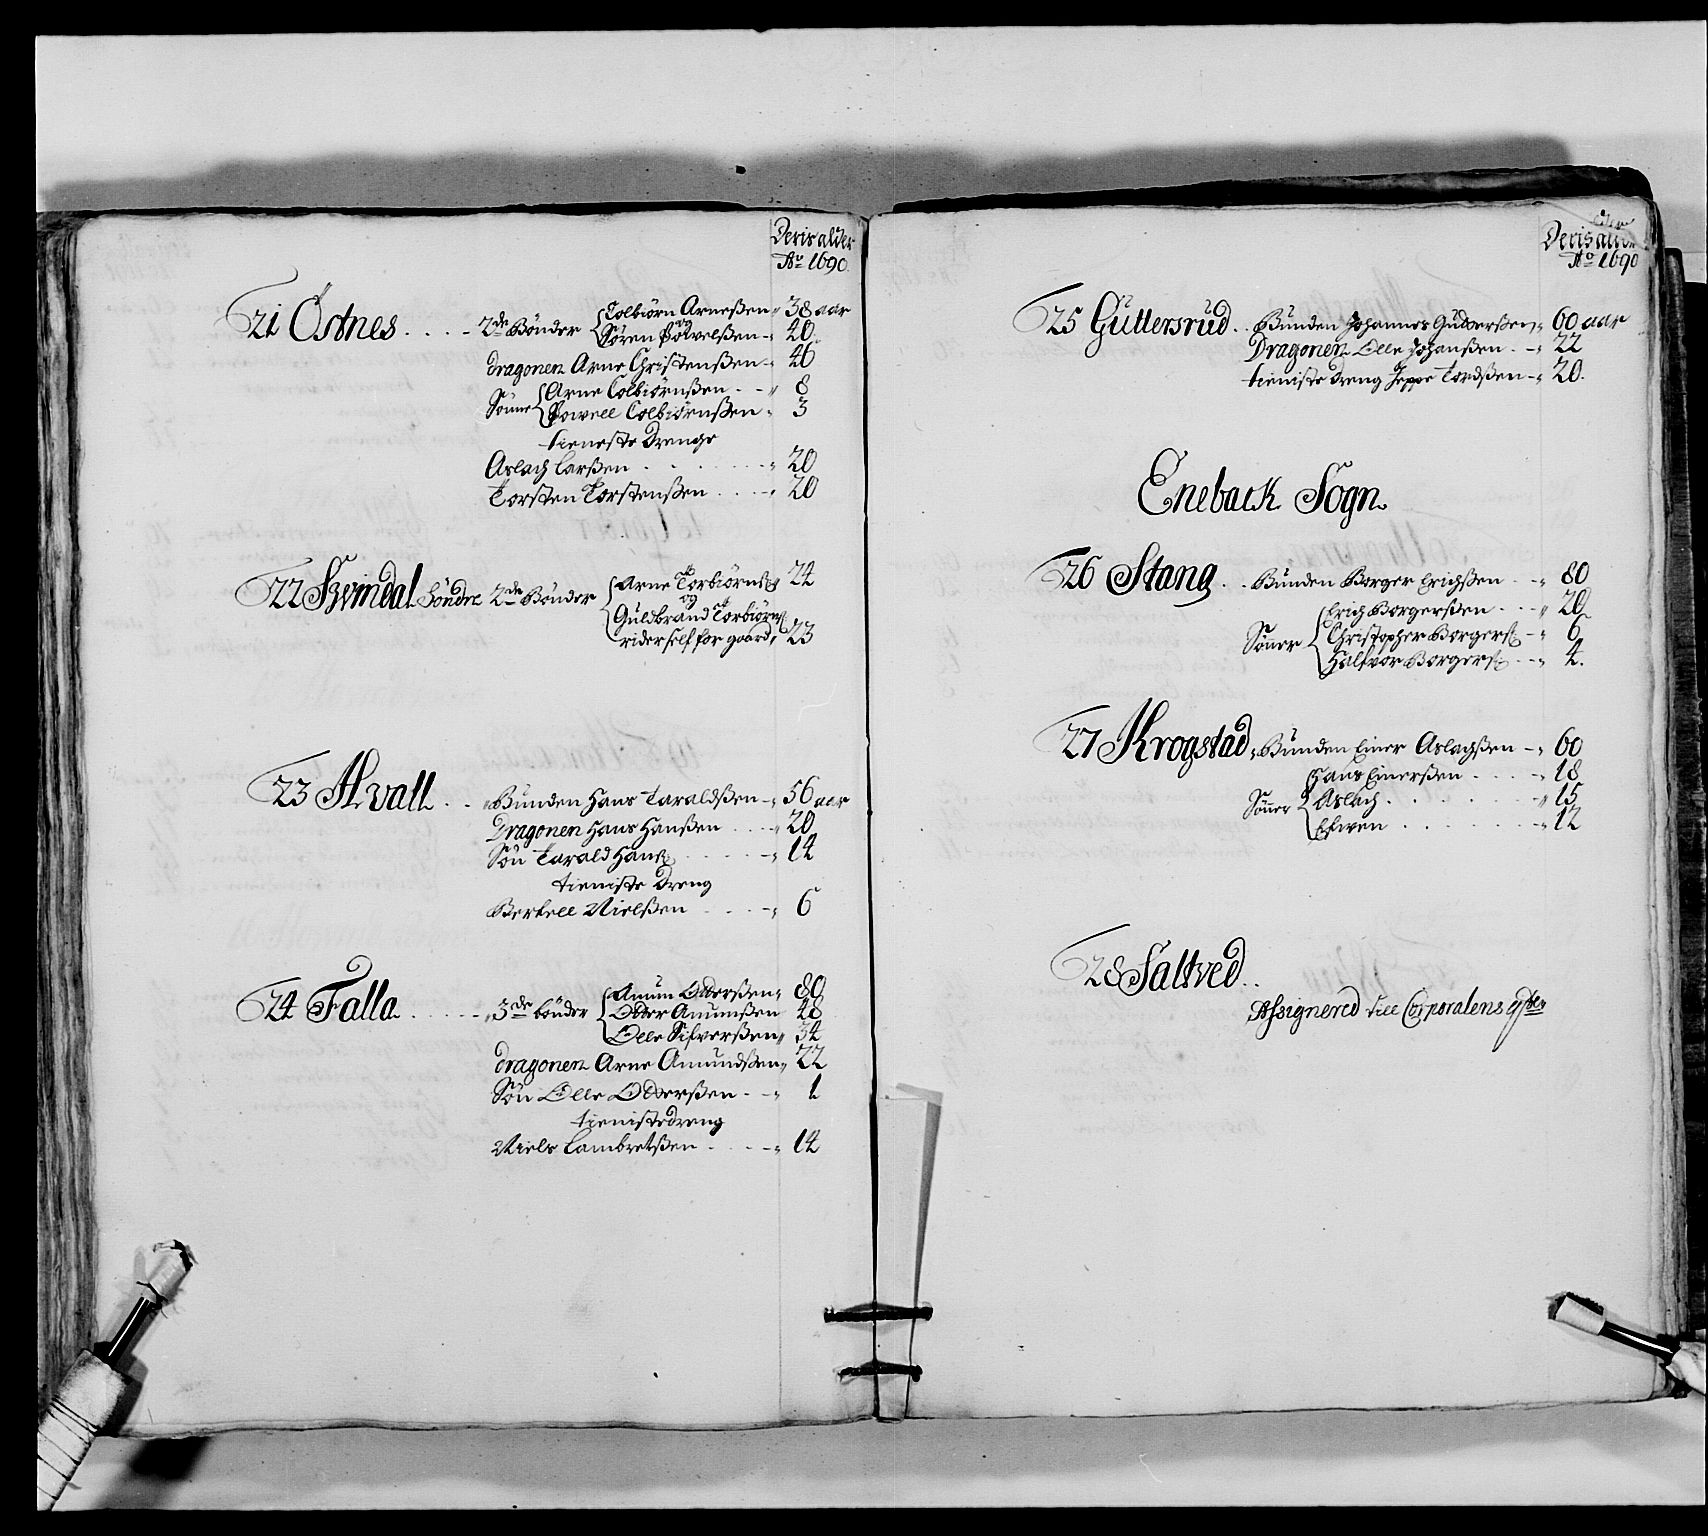 Deris alder
Ao 1690
21 Östnes . . . . 2de Bönder Colbiörn Arneßen 38 aar
og
Sören Powelßen 40
dragonen Arne Christenßen 46
Sönne Arne Colbiörnßen 8
Powell Colbiörnßen 3
tieneste Drenge
Aslach Larßen 20
Torsten Torstenßen 20
22 Svindal Söndre 2de Bönder Arne Torbiörnß 24
og
Guldbrand Torbiörnß
rider self for gaard 23
23 Alvall . . Bunden Hans Taraldßen 56 aar
Dragonen Hans Hanßen 20
Sön Tarald Hanß 14
tieniste Dreng
Bertell Nielßen 6
24 Falla . . . . . 3de bönder Amun Odderßen 80
Odder Amunßen 48
Olle Silverßen 34
dragonen Arne Amundßen 22
Sön Olle Odderßen 1
tieniste dreng
Niels Lambretßen 14
Deris alder
Ao 1690
25 Guttersrud . . Bunden Johannes Gudderßen 60 aar
Dragonen Olle Johanßen 22
tieniste Dreng Jeppe Tordßen 20.
Eneback Sogn.
26 Stang . . Bunden Borger Erichßen 80
Erich Borgerßen 20
Sönner Christopher Borgerß 6
Halfvor Borgerß 4.
27 Krogstad Bunden Einer Aslachßen 60
Hans Einerßen 18
Sönner Aslach 15
Efwen 12
28 Saltved . .
Assignered till Corporalens